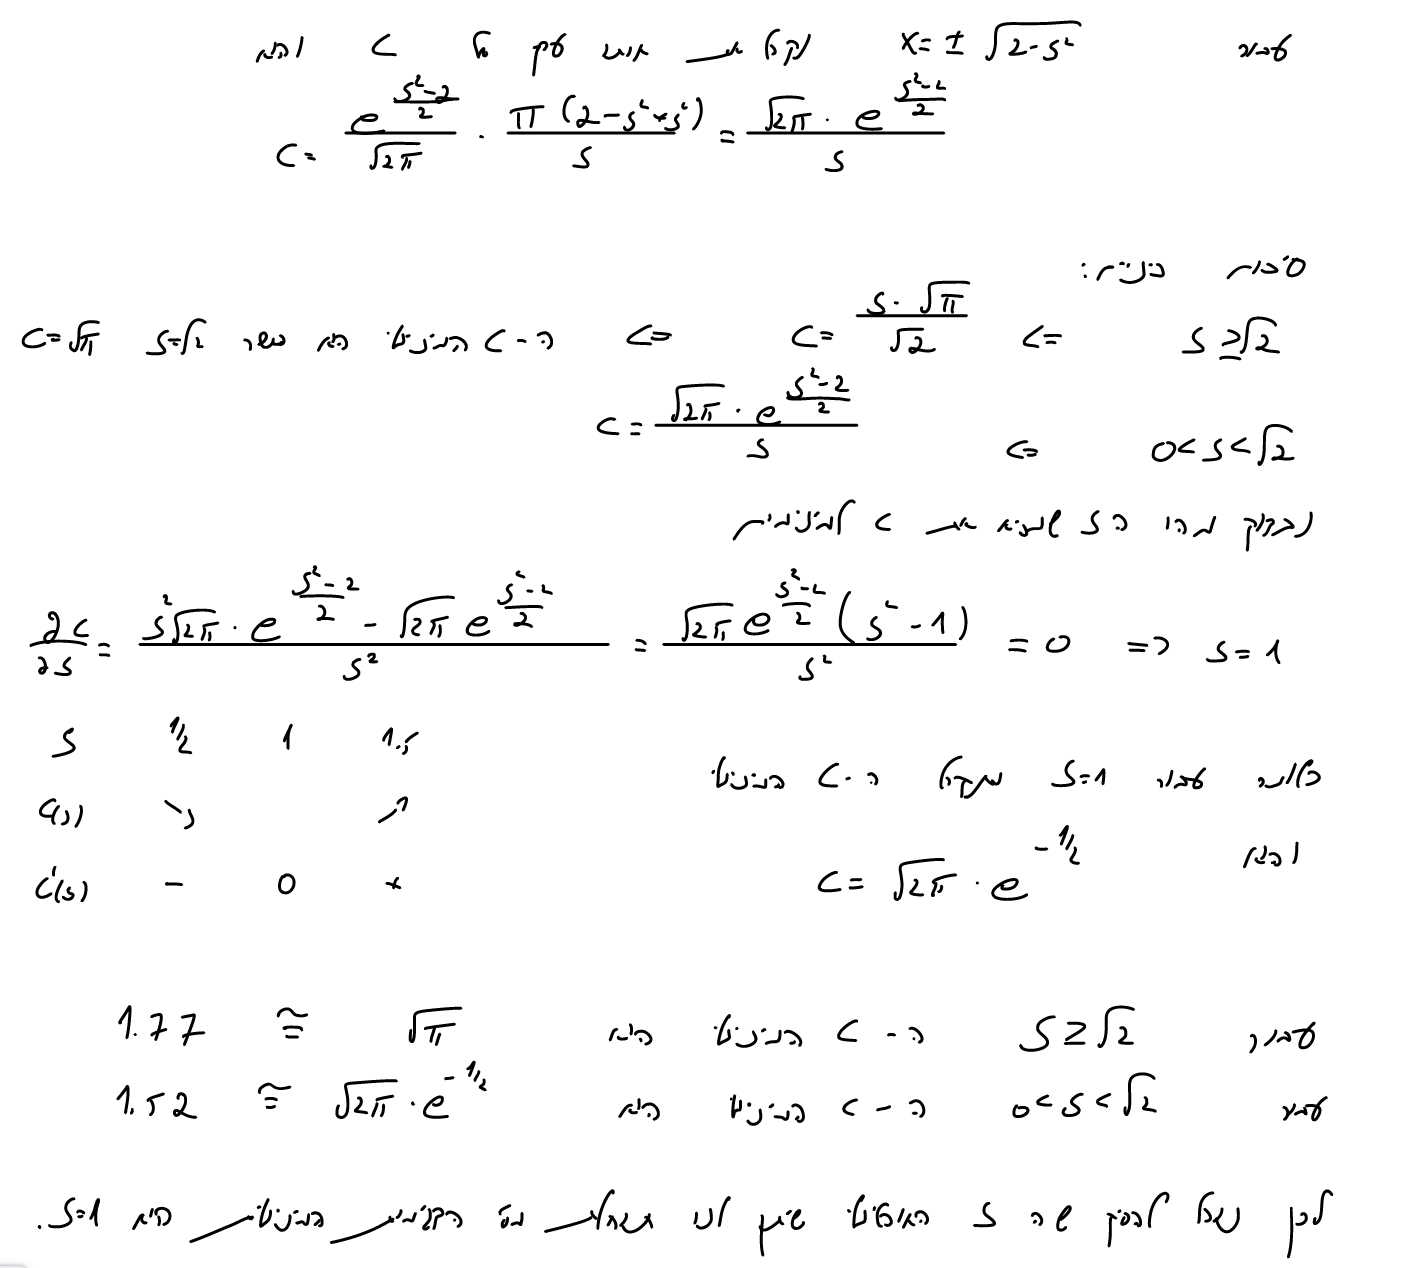 עבור x = ± √(2-s²) נקבל את אותו על C והיא
C = e^((s²-2)/2) / √(2π) · π(2-s²+s²) / s = √(2π) · e^((s²-2)/2) / s
:
s ≥ √2 => C = s·√π / √2 => ה-C המינימלי הוא כאשר s=√2 C=√π
0 < s < √2 => C = √(2π) · e^((s²-2)/2) / s
נבדוק מהו ה s שמביא את C למינימום
∂C/∂s = (s²√(2π) · e^((s²-2)/2) - √(2π) e^((s²-2)/2)) / s² = √(2π) e^((s²-2)/2) (s²-1) / s² = 0 => s=1
s 1/2 1 1.5
C(s) ↘ ↗
C'(s) - 0 +
כלומר עבור s=1 מתקבל ה-C המינימלי
והוא C = √(2π) · e^(-1/2)
עבור s ≥ √2 ה-C המינימלי הוא √π ≅ 1.77
עבור 0 < s < √2 ה-C המינימלי הוא √(2π) · e^(-1/2) ≅ 1.52
לכן נוכל להסיק שה s האופטימלי שיתן לנו המינימלית היא s=1.